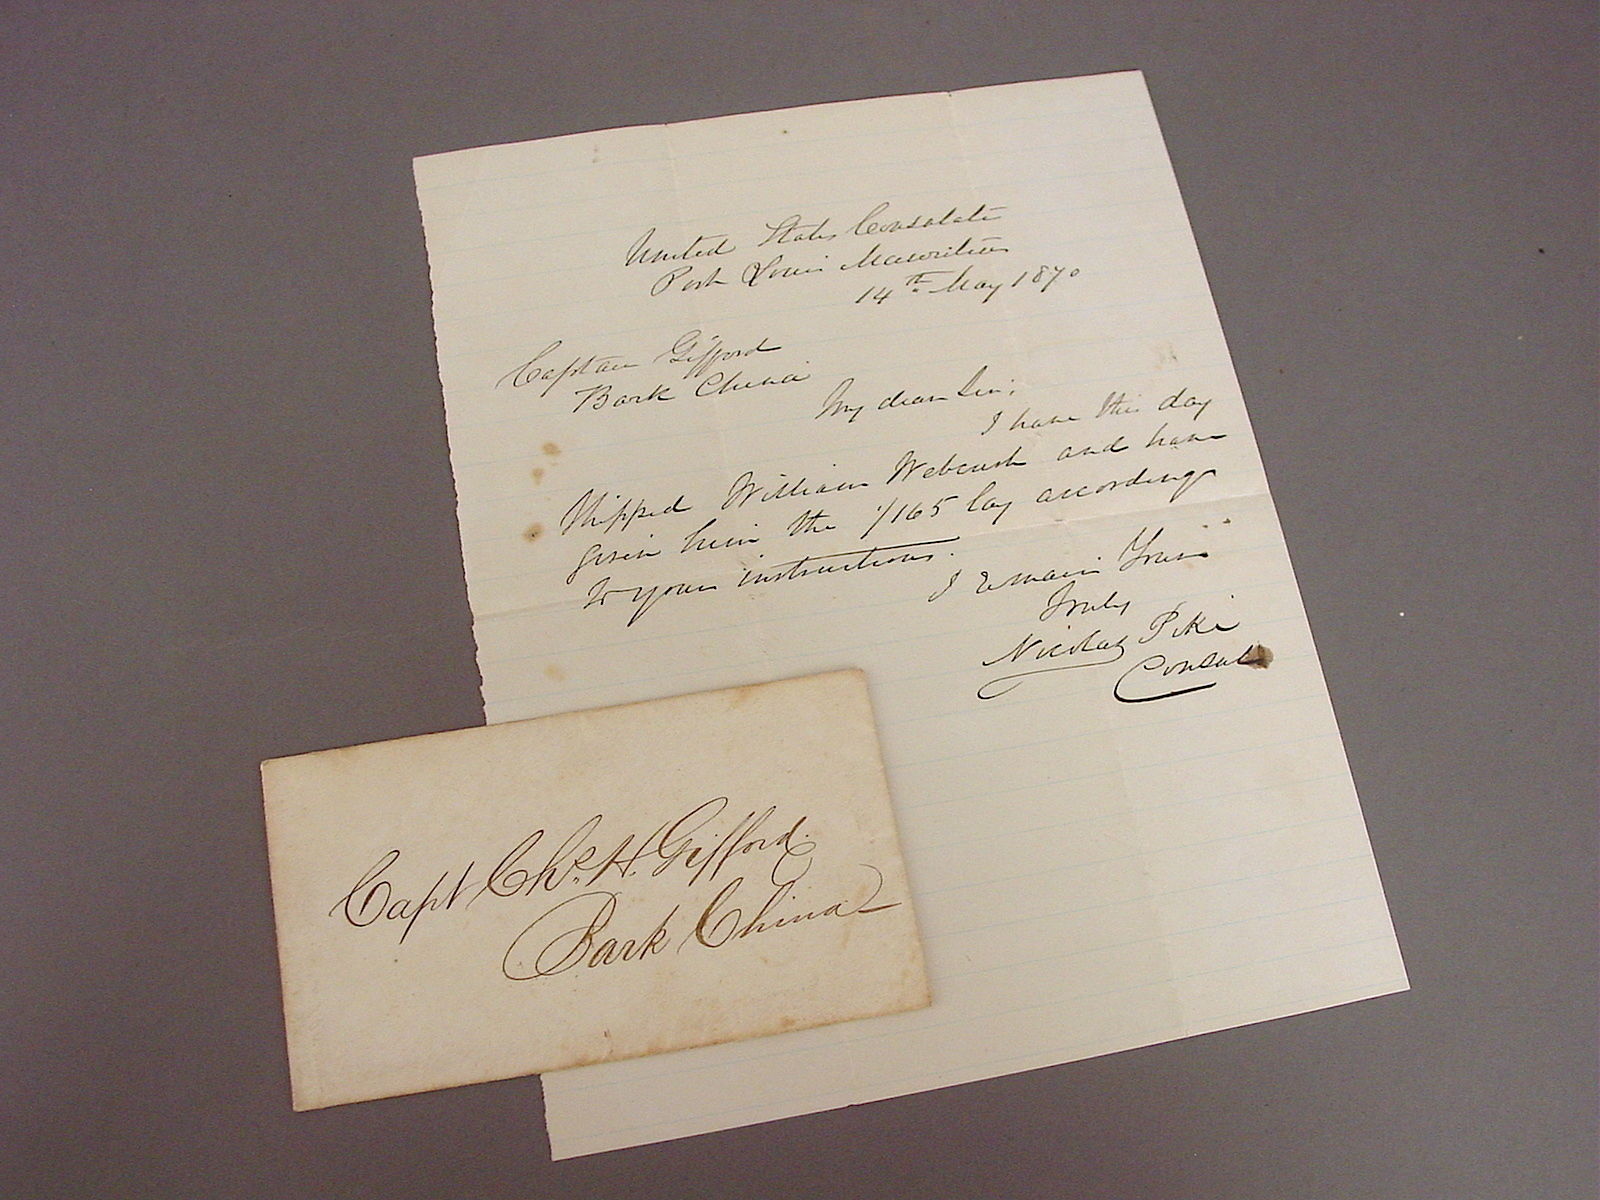 United States Consulate
Port Louis Mauritius
14th May 1870
Captain Gifford
Bark China
My dear Sir;
I have this day
Shipped William Webcush and have
given him the 1/165 lay according
to your instructions.
I remain Yours
Truly
Nicolas Pike
Consul
Capt Chs. H. Gifford.
Bark China